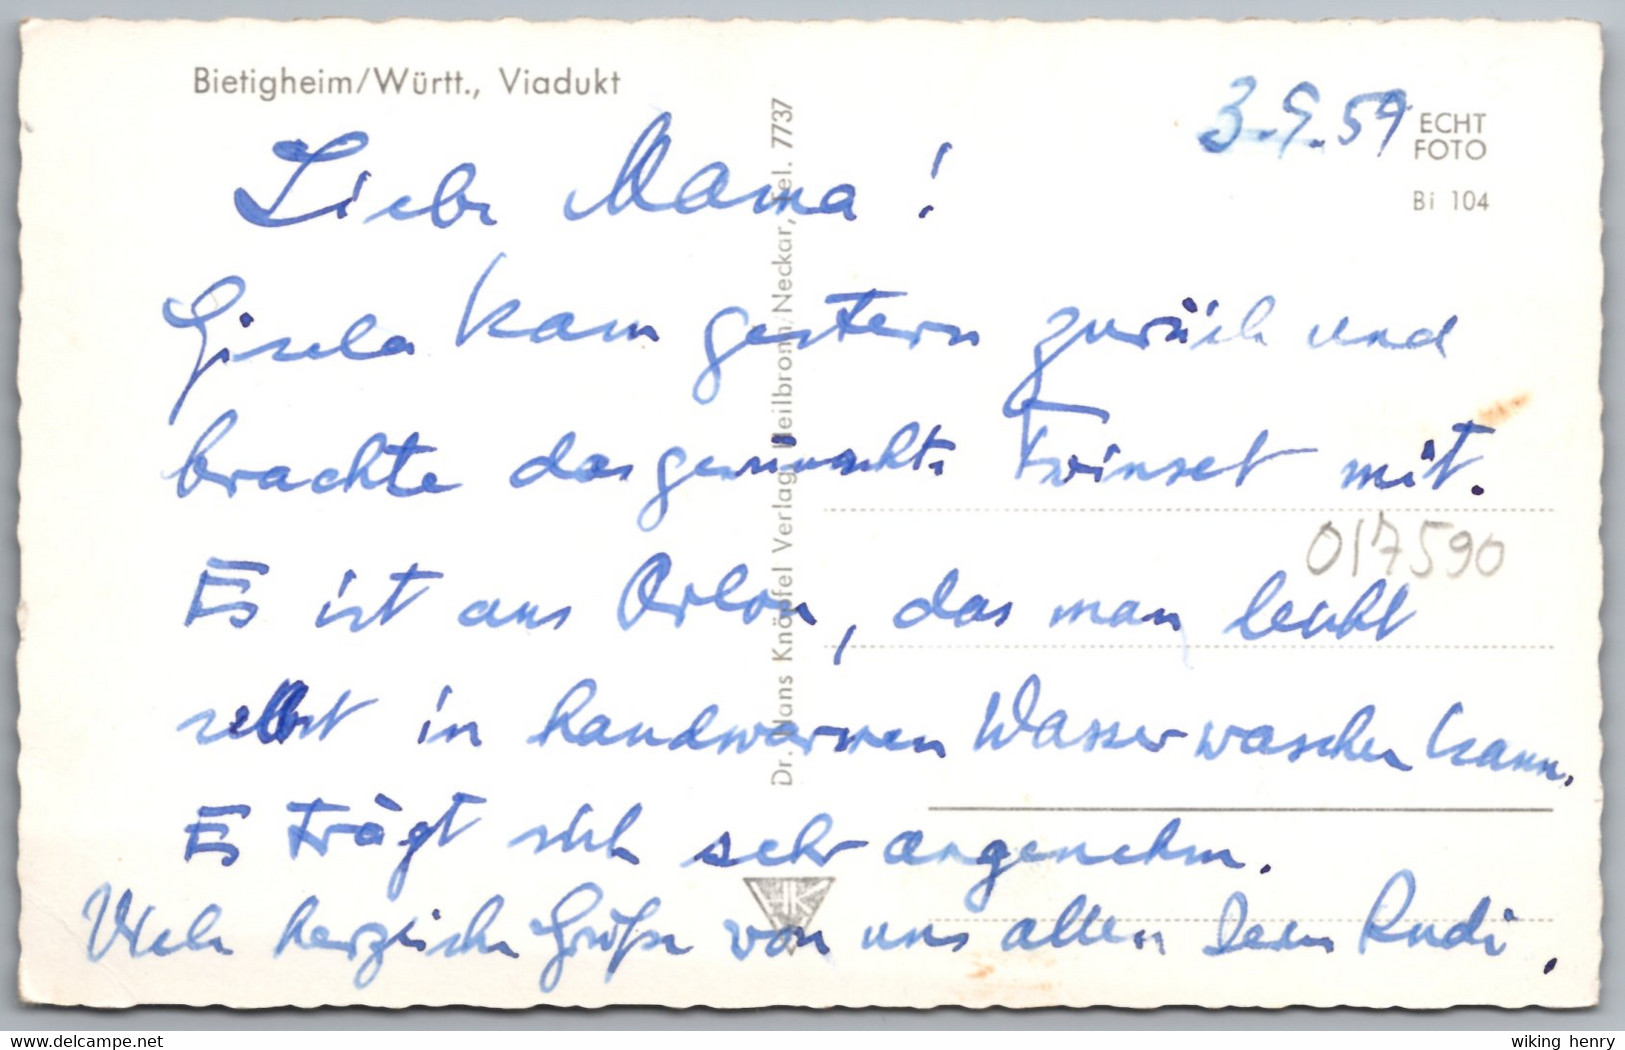 Bietigheim/Württ., Viadukt
3.9.59
ECHT
FOTO
Bi 104
Liebe Mama!
Gisela kam gestern zurück und
brachte das gewünschte Twinset mit.
017590
Es ist aus Orlon, das man leicht
selbst in handwarmen Wasser waschen kann.
Es trägt sich sehr angenehm.
Viele herzliche Grüße von uns allen Dein Rudi.
Dr. Hans Knöpfel Verlag, Heilbronn/Neckar, Tel. 7737
HK
wiking henry